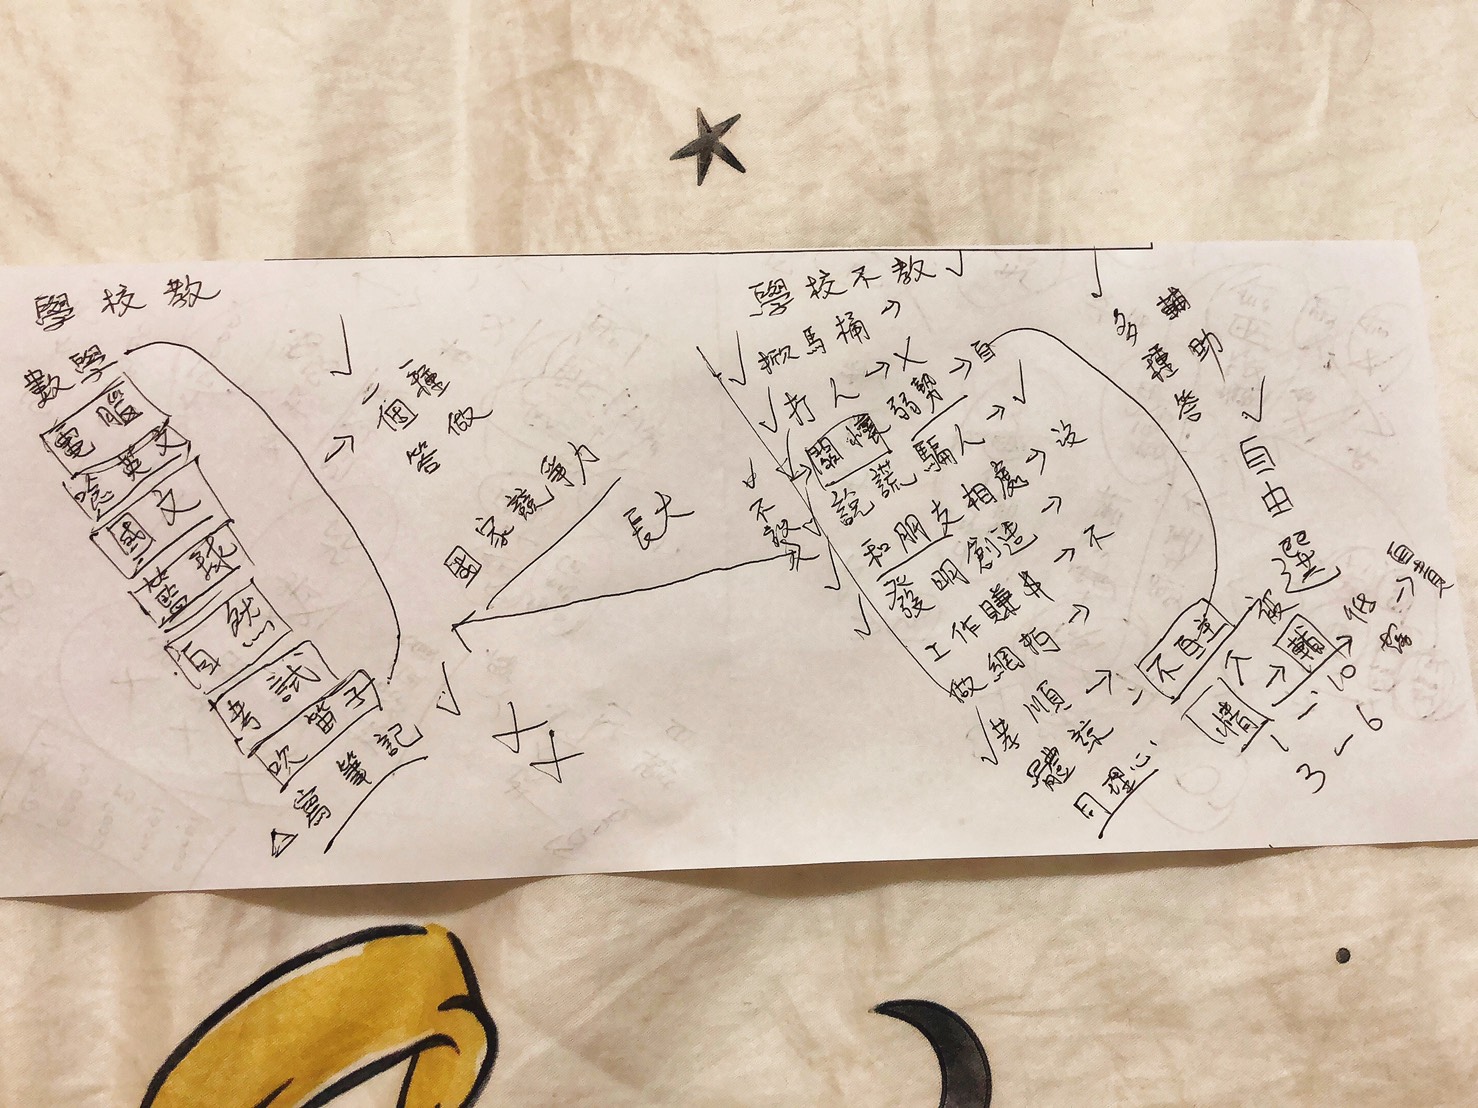 學校教
數學
電腦
唸英文
國文
籃球
自然
考試
吹笛子
寫筆記
一種
個做
答
國家競爭力
長大
學校不教
掀馬桶→
打人→X
關懷弱勢→自
說謊騙人→
和朋友相處→沒
發明創造→
工作賺錢→不
做網拍→
孝順→
體諒
同理心
不教
多種
答
輔助
自由選
不自主
被輔
個人→
情
1-10
1
3-6
自